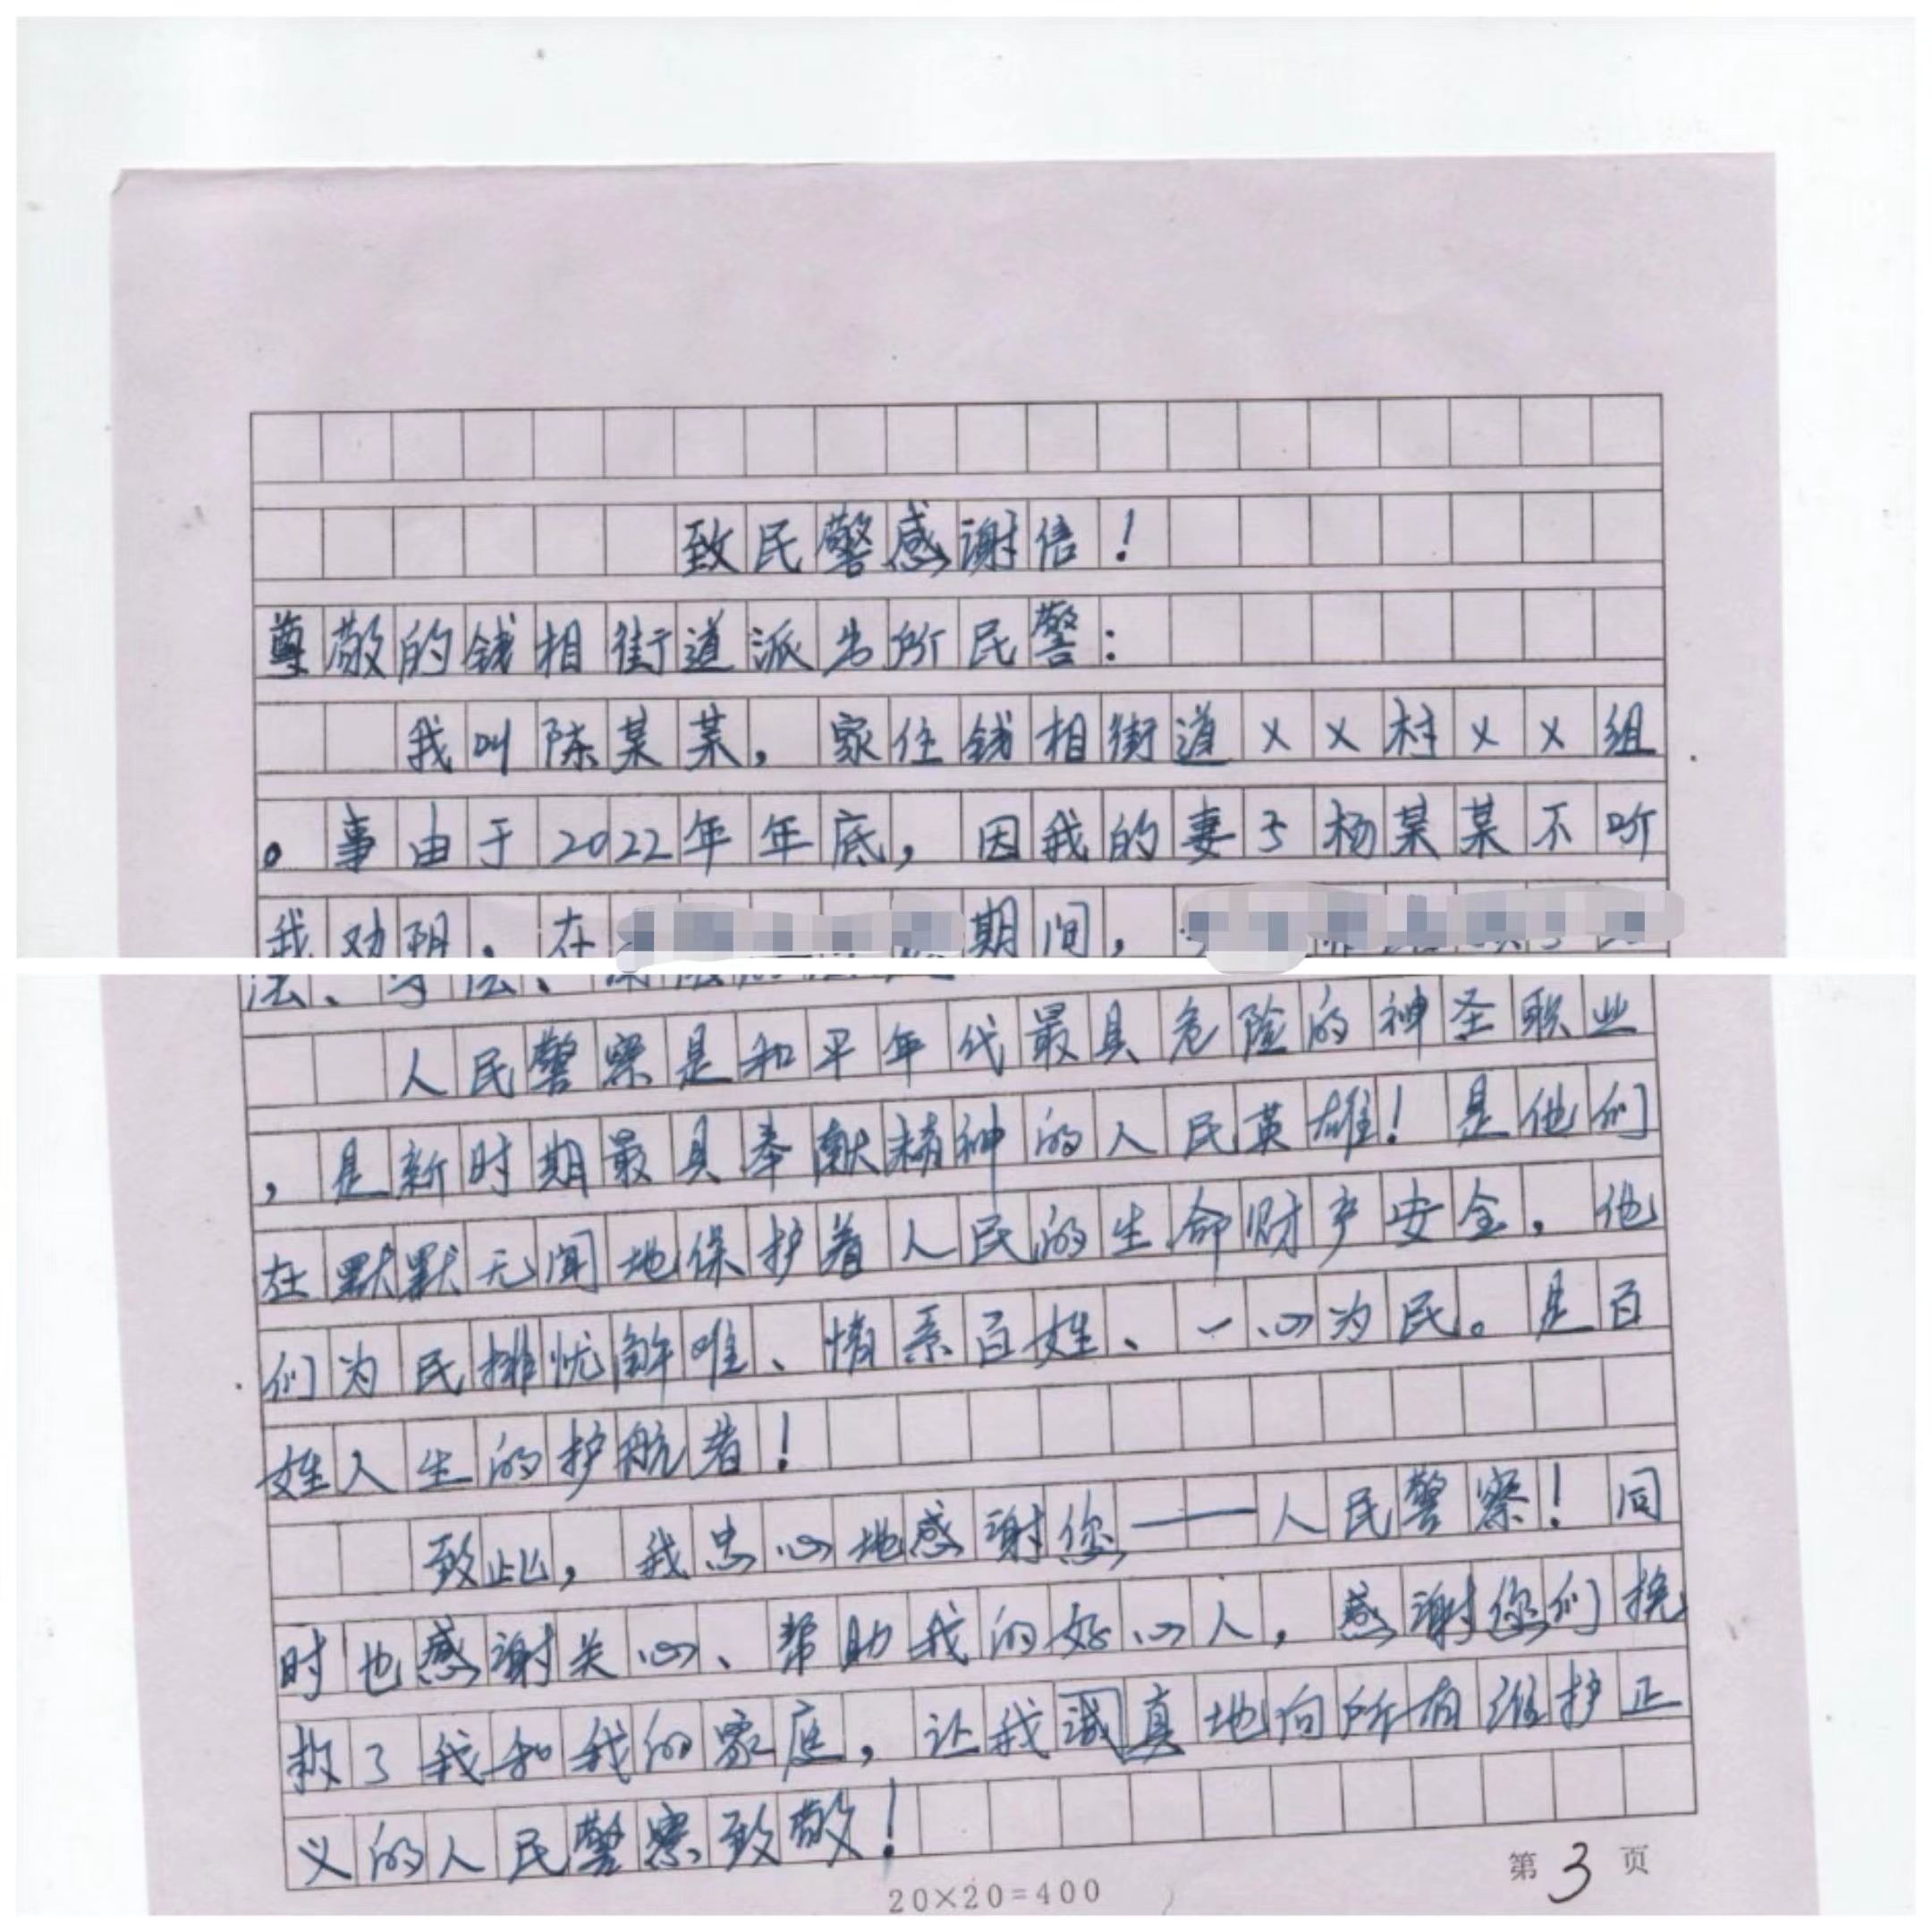 致民警感谢信！
尊敬的钱相街道派出所民警：
我叫陈某某，家住钱相街道××村××组
。事由于2022年年底，因我的妻子杨某某不听
我劝阻，在 期间，
法、守法、
人民警察是和平年代最具危险的神圣职业
，是新时期最具奉献精神的人民英雄！是他们
在默默无闻地保护着人民的生命财产安全，他
们为民排忧解难、情系百姓、一心为民。是百
姓人生的护航者！
致此，我忠心地感谢您——人民警察！同
时也感谢关心、帮助我的好心人，感谢您们挽
救了我和我的家庭，让我诚真地向所有维护正
义的人民警察致敬！
第3页
20×20=400